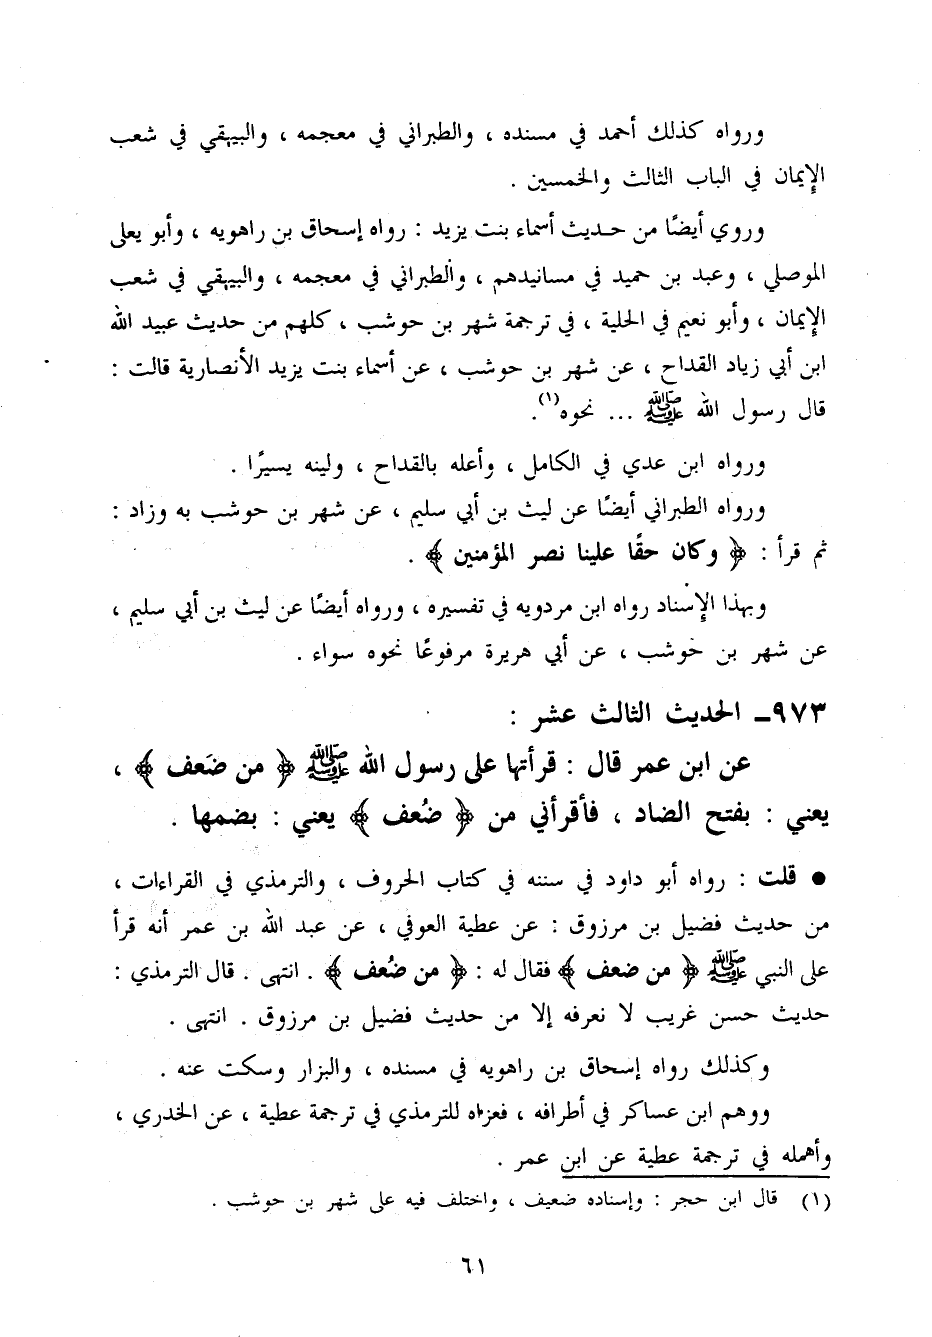 ورواه كذلك أحمد في مسنده ، والطبراني في معجمه ، والبيهقي في شعب
الإيمان في الباب الثالث والخمسين .
وروي أيضًا من حديث أسماء بنت يزيد : رواه إسحاق بن راهويه ، وأبو يعلى
الموصلي ، وعبد بن حميد في مسانيدهم ، والطبراني في معجمه ، والبيهقي في شعب
الإيمان ، وأبو نعيم في الحلية ، في ترجمة شهر بن حوشب ، كلهم من حديث عبيد الله
ابن أبي زياد القداح ، عن شهر بن حوشب ، عن أسماء بنت يزيد الأنصارية قالت :
قال رسول الله ﷺ ... نحوه(١).
ورواه ابن عدي في الكامل ، وأعله بالقداح ، ولينه يسيرًا .
ورواه الطبراني أيضًا عن ليث بن أبي سليم ، عن شهر بن حوشب به وزاد :
ثم قرأ : ﴿ وكان حقًا علينا نصر المؤمنين ﴾ .
وبهذا الإسناد رواه ابن مردويه في تفسيره ، ورواه أيضًا عن ليث بن أبي سليم ،
عن شهر بن حوشب ، عن أبي هريرة مرفوعًا نحوه سواء .
٩٧٣ـ الحديث الثالث عشر :
عن ابن عمر قال : قرأتها على رسول الله ﷺ ﴿ من ضَعف ﴾ ،
يعني : بفتح الضاد ، فأقرأني من ﴿ ضُعف ﴾ يعني : بضمها .
● قلت : رواه أبو داود في سننه في كتاب الحروف ، والترمذي في القراءات ،
من حديث فضيل بن مرزوق : عن عطية العوفي ، عن عبد الله بن عمر أنه قرأ
على النبي ﷺ ﴿ من ضعف ﴾ فقال له : ﴿ من ضُعف ﴾ . انتهى . قال الترمذي :
حديث حسن غريب لا نعرفه إلا من حديث فضيل بن مرزوق . انتهى .
وكذلك رواه إسحاق بن راهويه في مسنده ، والبزار وسكت عنه .
ووهم ابن عساكر في أطرافه ، فعزاه للترمذي في ترجمة عطية ، عن الخدري ،
وأهمله في ترجمة عطية عن ابن عمر .
(١) قال ابن حجر : وإسناده ضعيف ، واختلف فيه على شهر بن حوشب .
٦١